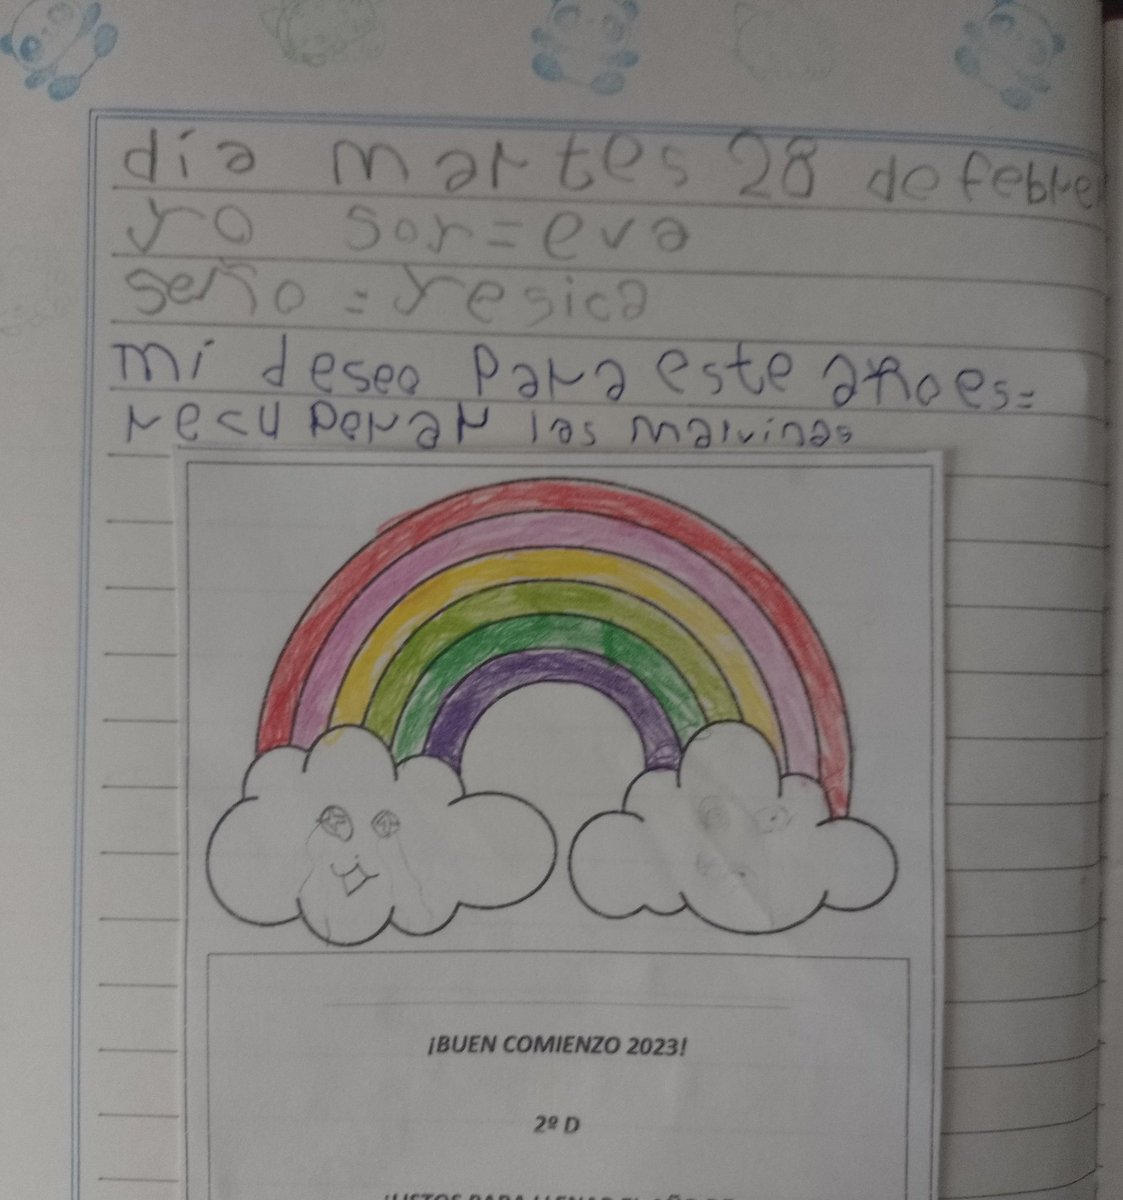 día martes 28 de febre
yo soy=eva
seño = yesica
mi deseo para este año es=
recuperar las malvinas
¡BUEN COMIENZO 2023!
2º D
¡LISTOS PARA LLENAR EL AÑO DE